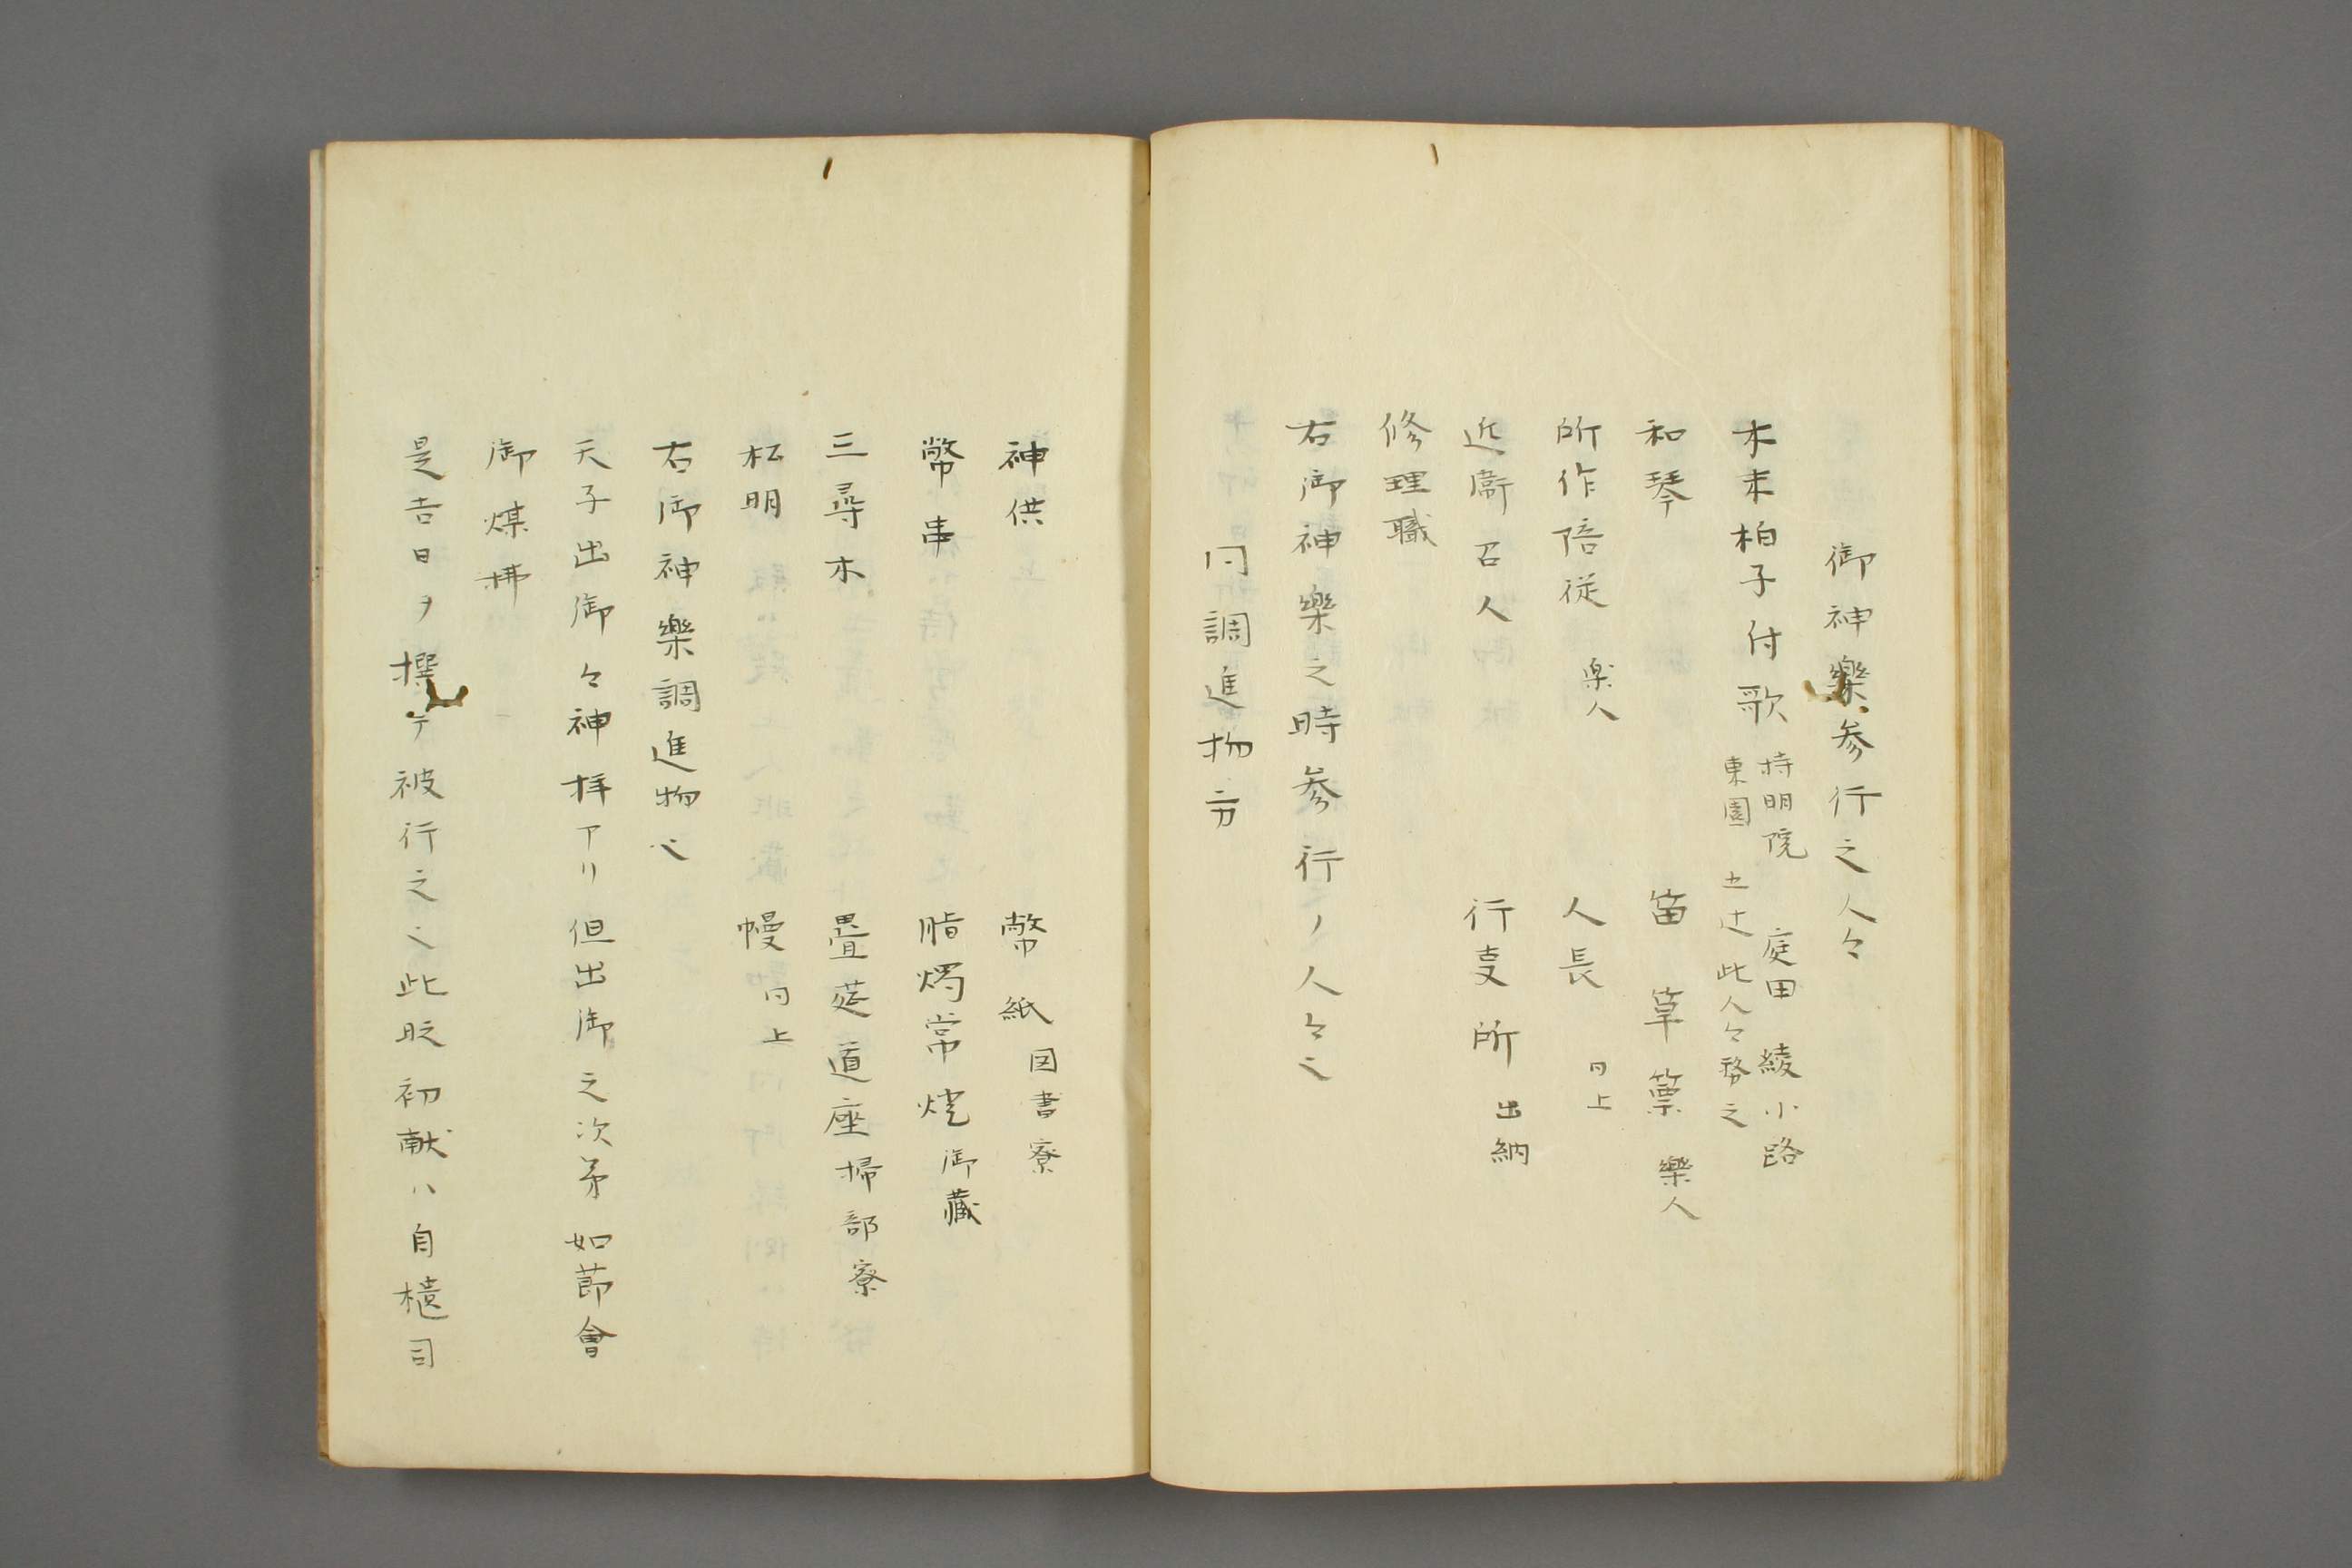 御神樂参行之人々
木末柏子付歌 持明院 庭田 綾小路
東園 五辻 此人々務之
和琴 笛 篳篥 樂人
所作陪従 楽人 人長 同上
近衛召人 行事所 出納
修理職
右御神樂之時参行ノ人々也
同調進物方
神供 幣紙 図書寮
幣串 脂燭常燈 御藏
三尋木 畳莚道座 掃部寮
松明 幔 同上
右御神樂調進物也
天子出御々神拝アリ但出御之次第如節會
御煤拂
是吉日ヲ撰テ被行之也此時初献ハ自樻司